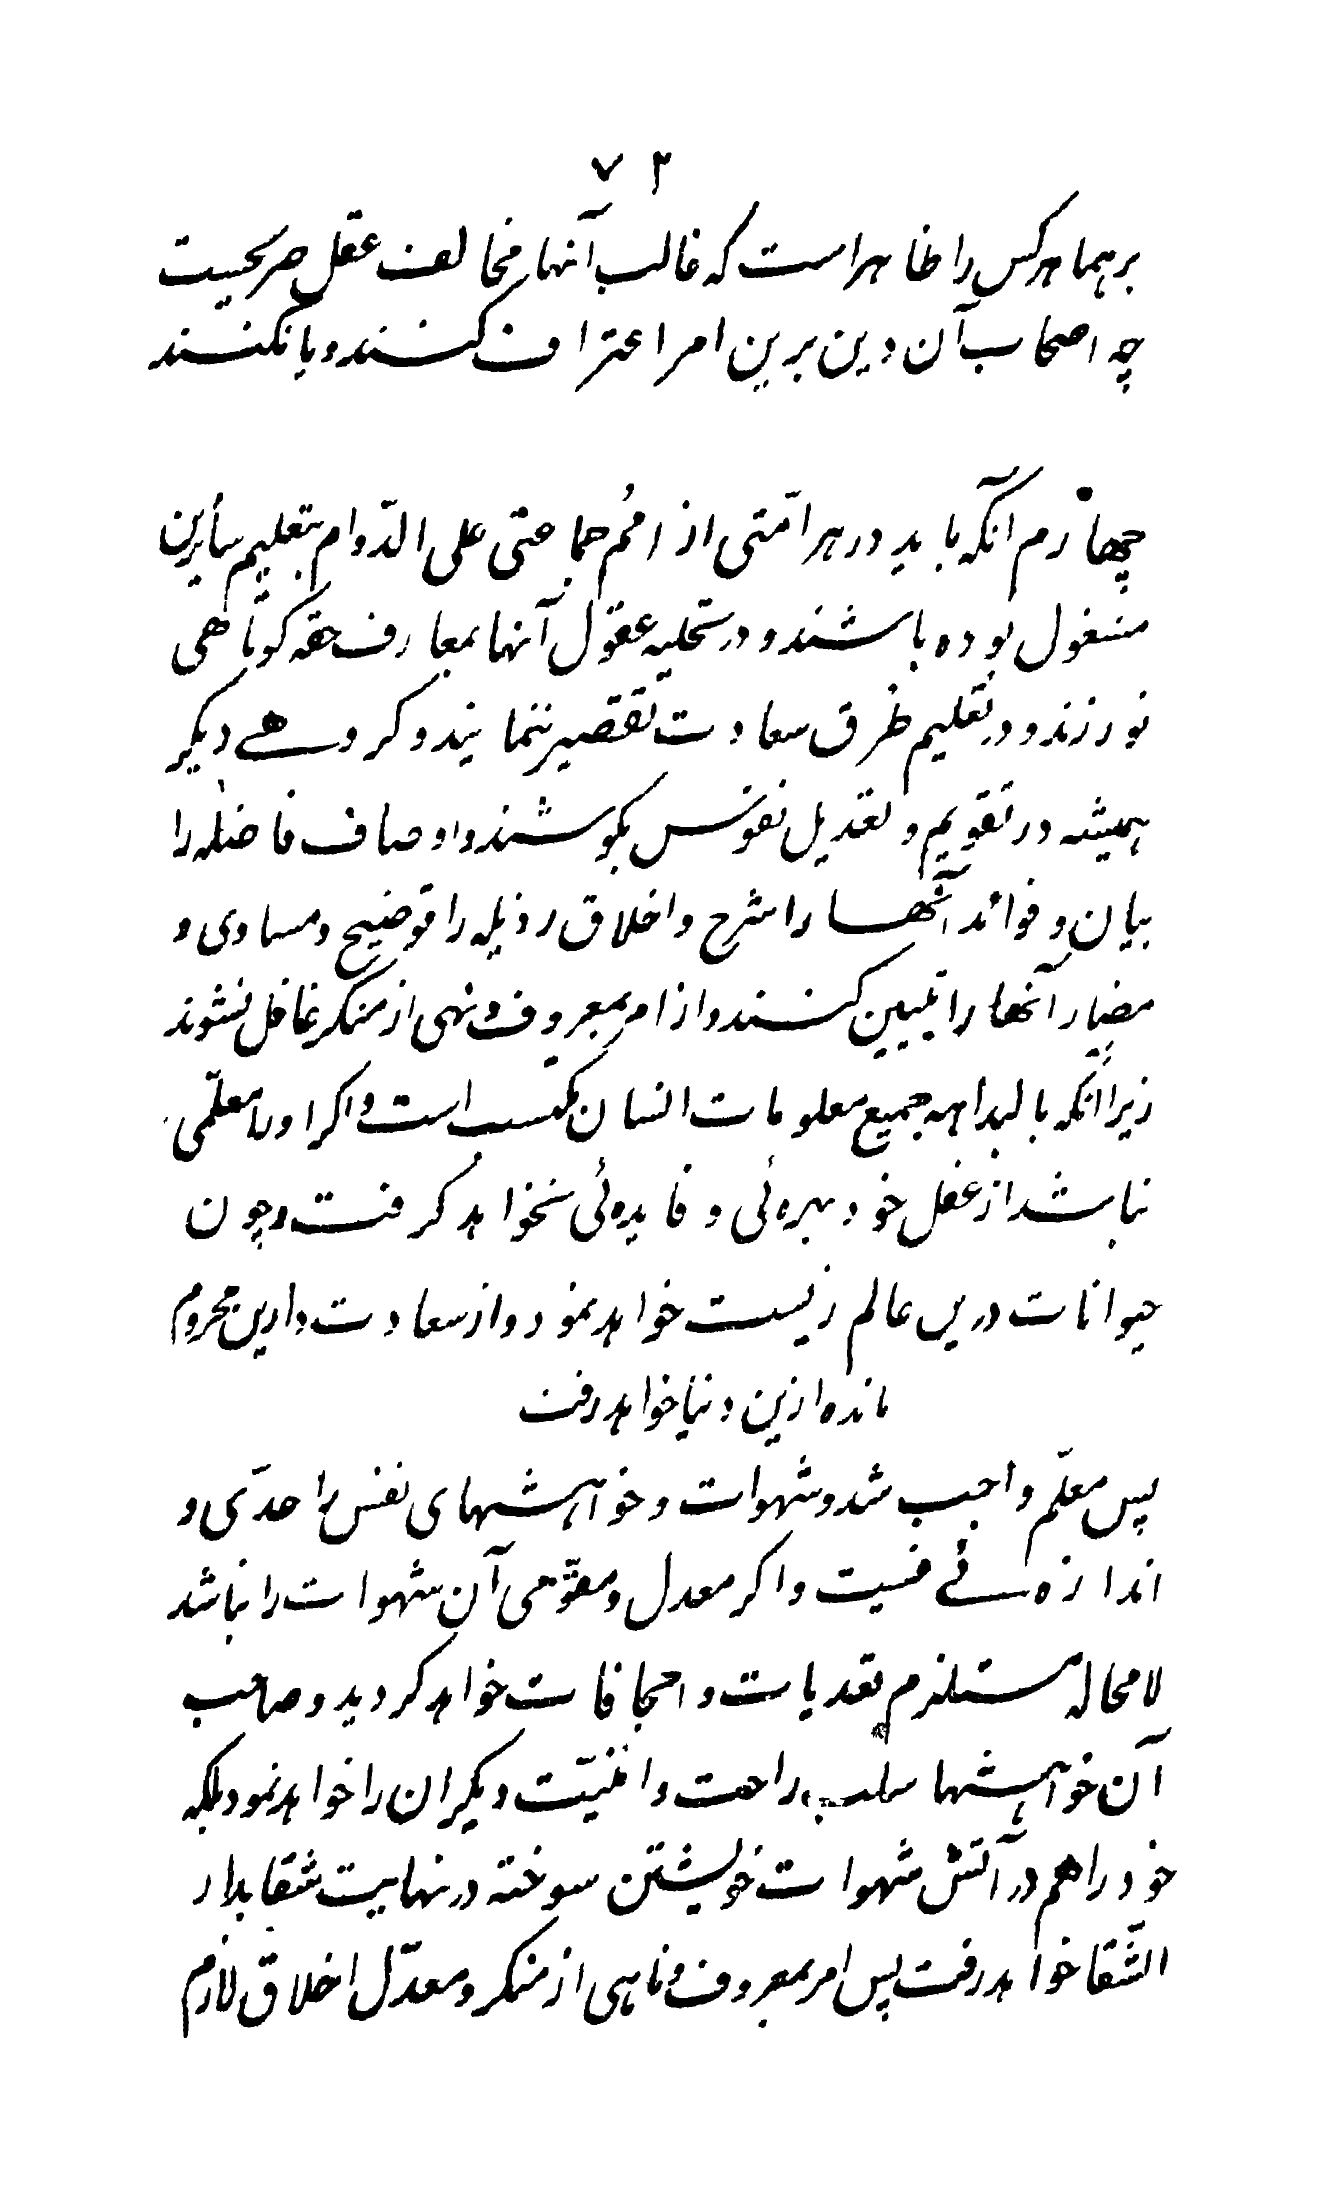 ۷۲
برهما هر کس را ظاهر است که غالب آنها مخالف عقل صریحیست
چه اصحاب آن دین برین امر اعتراف کنند و یا نکنند
چهارم آنکه باید در هر امّتی از اُمم جماعتی علی الدّوام بتعلیم سأیرین
مشغول بوده باشند و در تحلیه عقول آنها بمعارف حقه کوتاهی
نورزند و در تعلیم طُرق سعادت تقصیر ننمایند و کروهے دیکر
همیشه در تقویم و تعدیل نفوس بکوشند و اوصاف فاضله را
بیان و فوائد آنها را شرح و اخلاق رذیله را توضیح و مساوی و
مضار آنها را تبیین کنند و از امر بمعروف و نهی از منکر غافل نشوند
زیرا انکه بالبداهه جمیع معلومات انسان مکتسب است و اکر او را معلّمی
نباشد از عقل خود بهره ئی و فایده ئی نخواهد کرفت و چون
حیوانات درین عالم زیست خواهد نمود و از سعادت دارین محروم
مانده ازین دنیا خواهد رفت
پس معلّم واجب شد و شهوات و خواهشهای نفس را حدّی و
اندازه ئے نیست و اکر معدل و مقوّمی آن شهوات را نباشد
لا محاله مستلزم تعدیات و اجحافات خواهد کردید و صاحب
آن خواهشها سلب راحت و امنیّت دیکران را خواهد نمود بلکه
خود را هم در آتش شهوات خویشتن سوخته در نهایت شقا بدار
الشّقا خواهد رفت پس امر بمعروف و ناهی از منکر و معدّل اخلاق لازم